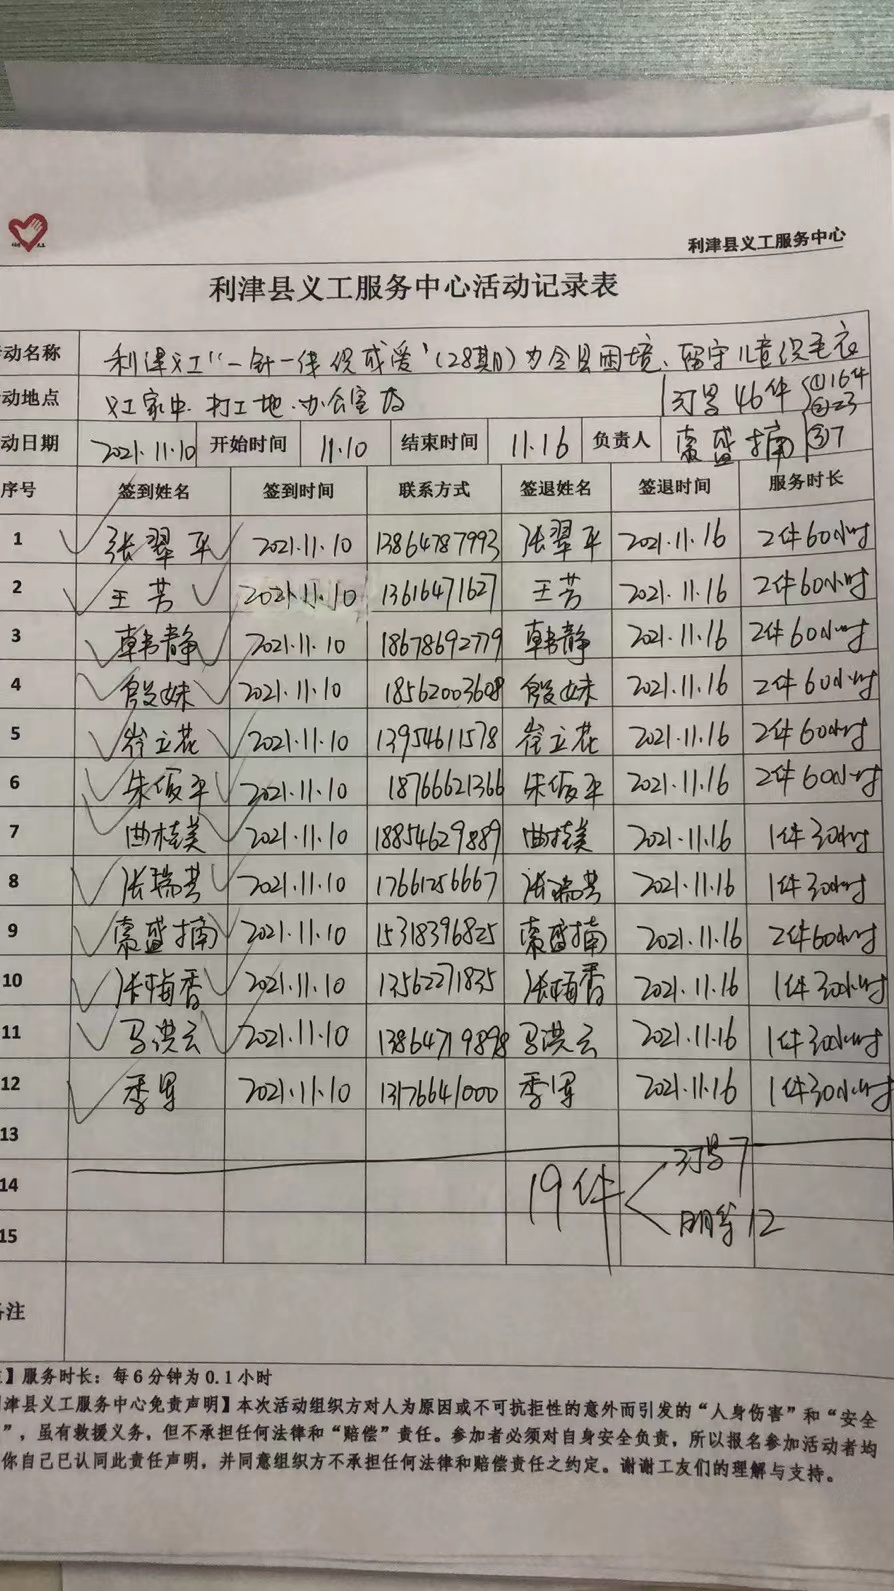 利津县义工服务中心
利津县义工服务中心活动记录表
动名称 利津义工"一针一线织成爱"(28期)为全县困境、留守儿童织毛衣
动地点 义工家中.打工地.办公室
46件 ①164 ②23 ③7
动日期 2021.11.10 开始时间 11.10 结束时间 11.16 负责人
序号 签到姓名 签到时间 联系方式 签退姓名 签退时间 服务时长
1 张翠平 2021.11.10 13864787993 张翠平 2021.11.16 2件60小时
2 王芳 2021.11.10 13616471627 王芳 2021.11.16 2件60小时
3 韩静 2021.11.10 18678692779 韩静 2021.11.16 2件60小时
4 殷妹 2021.11.10 18562003608 殷妹 2021.11.16 2件60小时
5 崔立花 2021.11.10 13954611578 崔立花 2021.11.16 2件60小时
6 2021.11.10 18766621366 2021.11.16 2件60小时
7 曲桂美 2021.11.10 18854629889 曲桂美 2021.11.16 1件30小时
8 张瑞芸 2021.11.10 17661256667 张瑞芸 2021.11.16 1件30小时
9 2021.11.10 15318396825 2021.11.16 2件60小时
10 张梅香 2021.11.10 13562271835 张梅香 2021.11.16 1件30小时
11 马洪云 2021.11.10 13864719898 马洪云 2021.11.16 1件30小时
12 季军 2021.11.10 13176641000 季军 2021.11.16 1件30小时
13
14 19件 7
15 12
注
】服务时长：每6分钟为0.1小时
津县义工服务中心免责声明】本次活动组织方对人为原因或不可抗拒性的意外而引发的“人身伤害”和“安全
”，虽有救援义务，但不承担任何法律和“赔偿”责任。参加者必须对自身安全负责，所以报名参加活动者均
你自己已认同此责任声明，并同意组织方不承担任何法律和赔偿责任之约定。谢谢工友们的理解与支持。